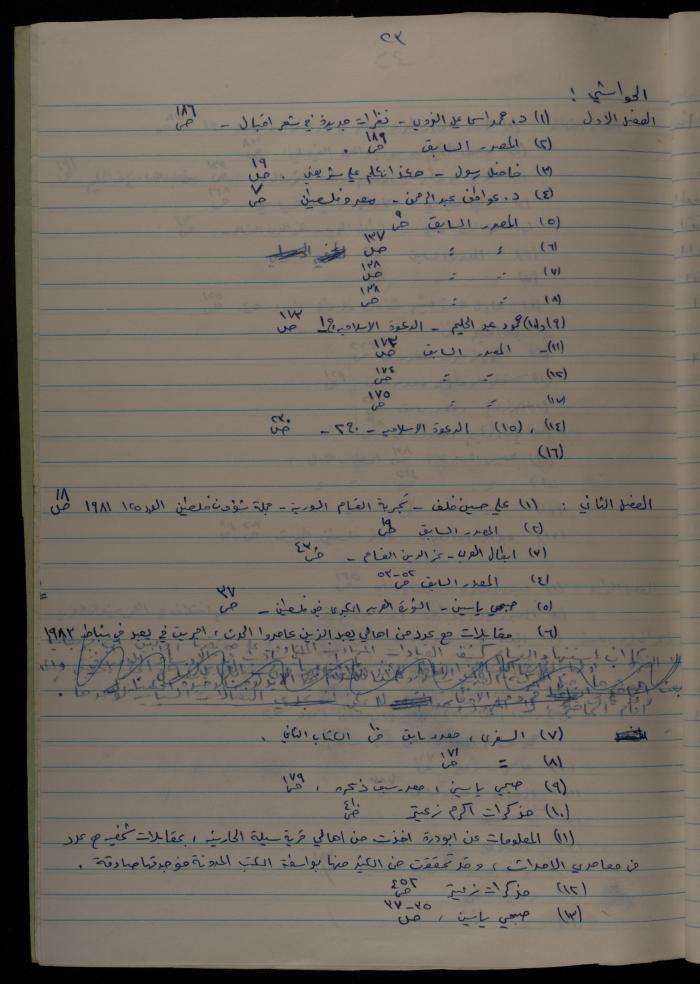 ٢٣
الحواشي :
الفصل الاول (١) د. محمد اسماعيل الندوي - نظرات جديدة في شعر اقبال - ص ١٨٦
(٢) المصدر السابق ص ١٨٩ .
(٣) فاضل رسول - هكذا تكلم علي شريعتي . ص ١٩
(٤) د. عواطف عبد الرحمن - مصر وفلسطين ص ٧
(٥) المصدر السابق ص ٩
(٦) = = ص ١٣٧
(٧) = = ص ١٣٨
(٨) = = ص ١٣٨
(٩) و(١٠) محمود عبد الحليم - الدعوة الاسلامية ج١ ص ١٧٣
(١١) - المصدر السابق ص ١٧٣
(١٢) = = ص ١٧٤
(١٣) = = ص ١٧٥
(١٤) ، (١٥) الدعوة الاسلامية - - ص ٢٣٠
(١٦)
الفصل الثاني : (١) علي حسين خلف - تجربة القسام السورية - مجلة شؤون فلسطين العدد ١٢٥ ١٩٨١ ص ١٨
(٢) المصدر السابق ص ١٩
(٣) ابطال العرب - عز الدين القسام - ص ٤٣
(٤) المصدر السابق ص ٥٢-٥٣
(٥) صبحي ياسين - الثورة العربية الكبرى في فلسطين - ص ٣٧
(٦) مقابلات مع عدد من اهالي يعبد الذين عاصروا الحدث ، اجريت في يعبد في شباط ١٩٨٢
(٧) السفري ، مصدر سابق ص ١٠ الكتاب الثاني .
(٨) = ص ١٧١
(٩) صبحي ياسين ، مصدر سبق ذكره ، ص ١٧٩
(١٠) مذكرات اكرم زعيتر ص ٤١٠
(١١) المعلومات عن ابو درة اخذت من اهالي قرية سيلة الحارثية ، بمقابلات شخصية مع عدد
من معاصري الاحداث ، وقد تحققت من الكثير منها بواسطة الكتب المدونة فوجدتها صادقة .
(١٢) مذكرات زعيتر ص ٤٥٢
(١٣) صبحي ياسين ، ص ٣٥-٣٧